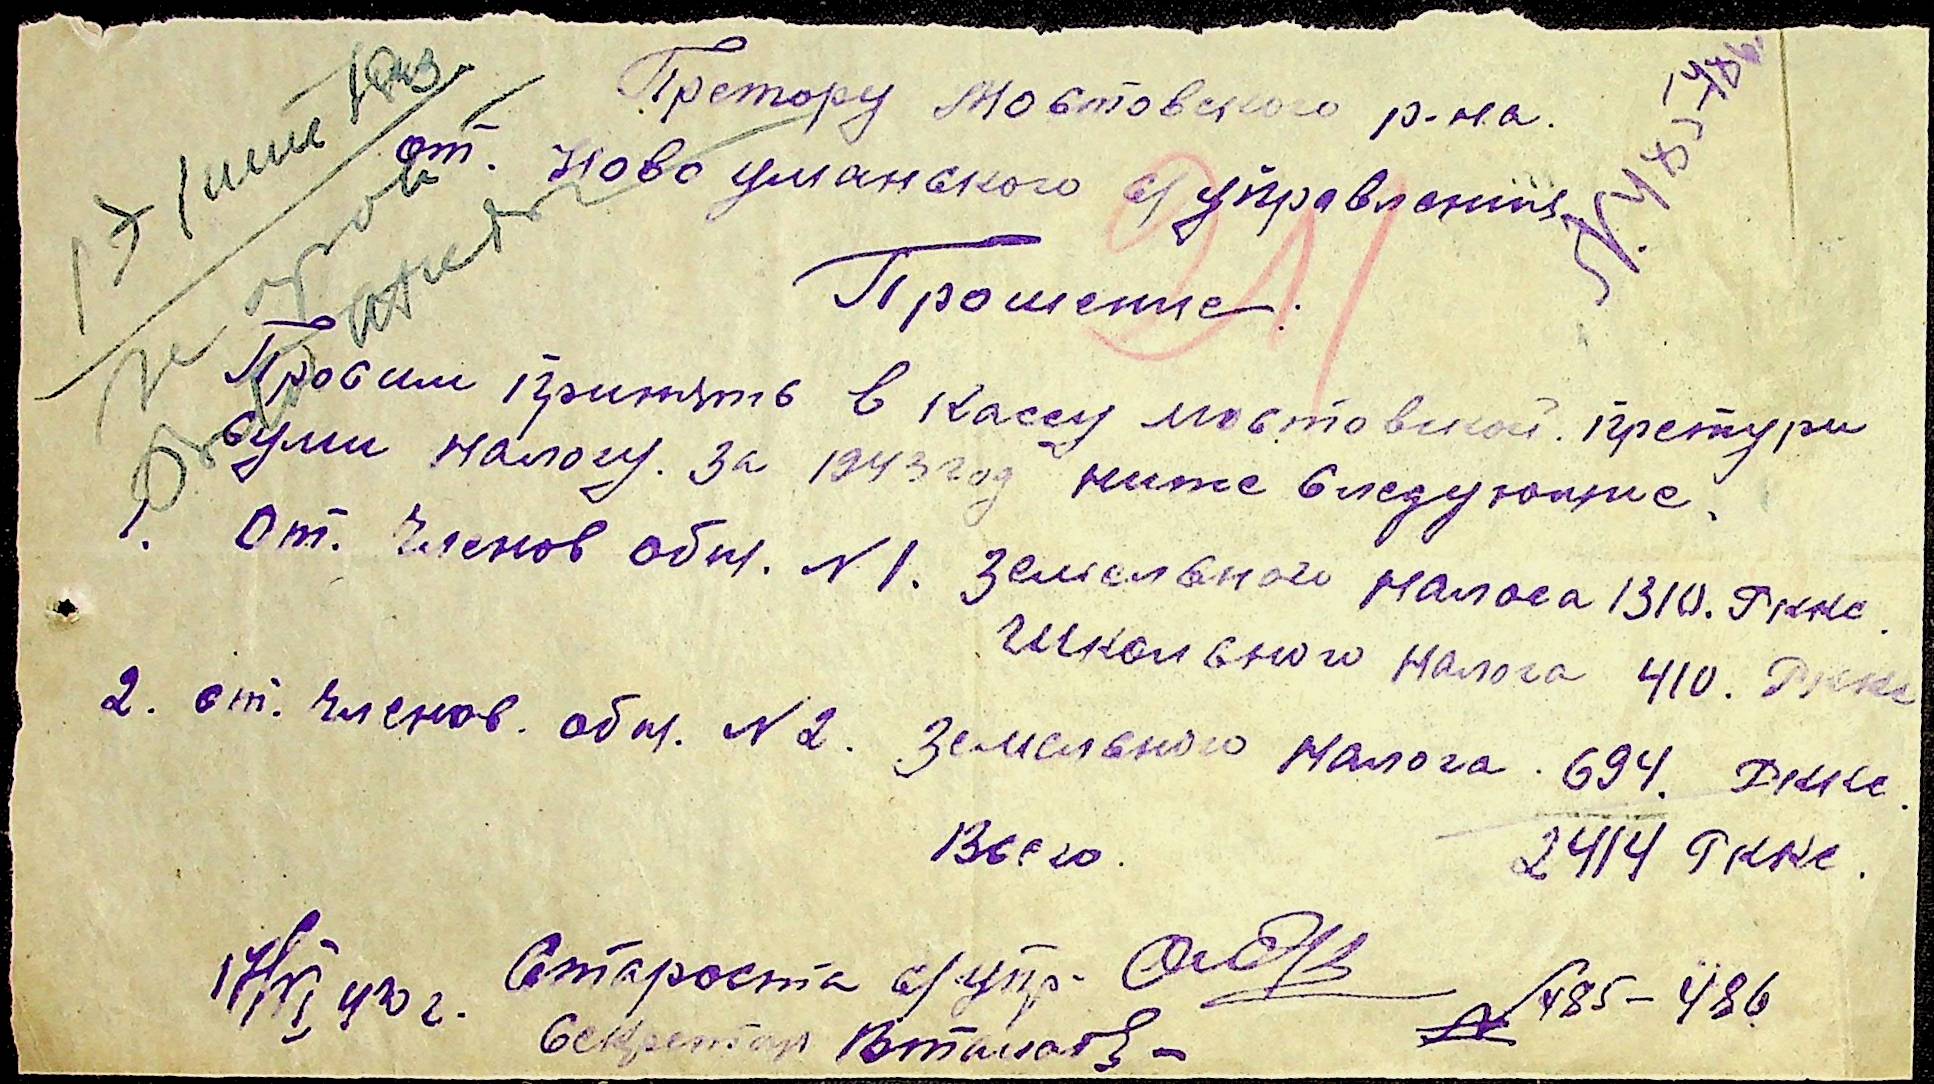 17 Iюнie 1943
Претору Мостовского р-на.
от. Ново уманського с/управления
N 485-486
21
Прошение.
Просим принять в кассу мостовской претури
суми налогу. за 1943 год ниже следующие.
1. От. членов общ. N 1. Земельного налога 1310. Рккс.
Школьного налога 410. Рккс
2. от. членов. общ. N 2. Земельного налога. 694. Рккс.
Всего. 2414 Рккс.
17/VI 43 г. Староста с/упр.
N 485-486
Секретар